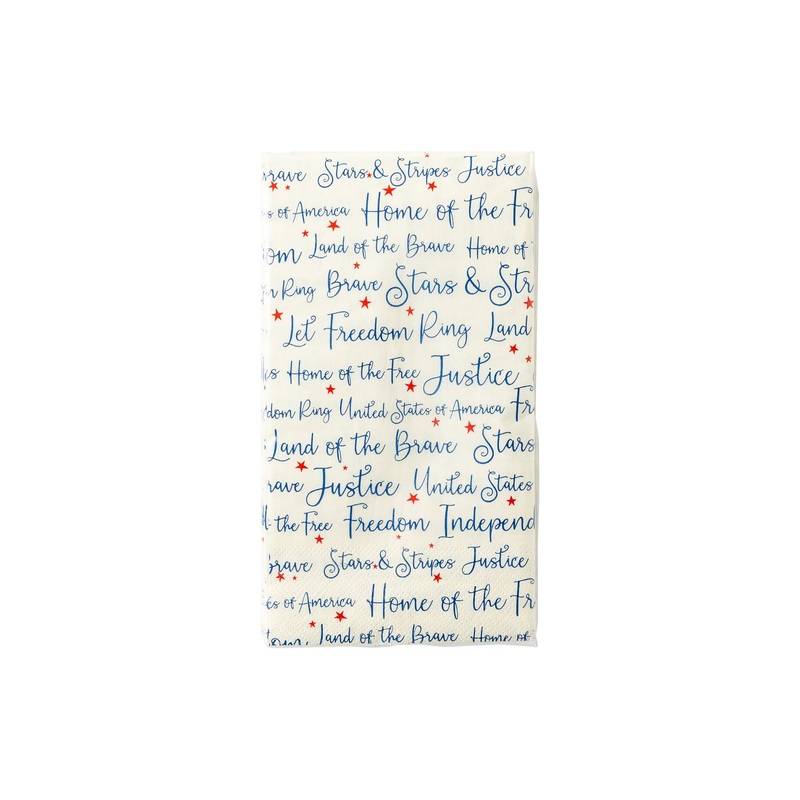 Brave Stars & Stripes Justice
s of America Home of the Fr
om Land of the Brave Home of
m Ring Brave Stars & Str
Let Freedom Ring Land
es Home of the Free Justice
dom Ring United States of America Fr
Land of the Brave Stars
rave Justice United States
the Free Freedom Independ
Brave Stars & Stripes Justice
es of America Home of the Fr
dom Land of the Brave Home of